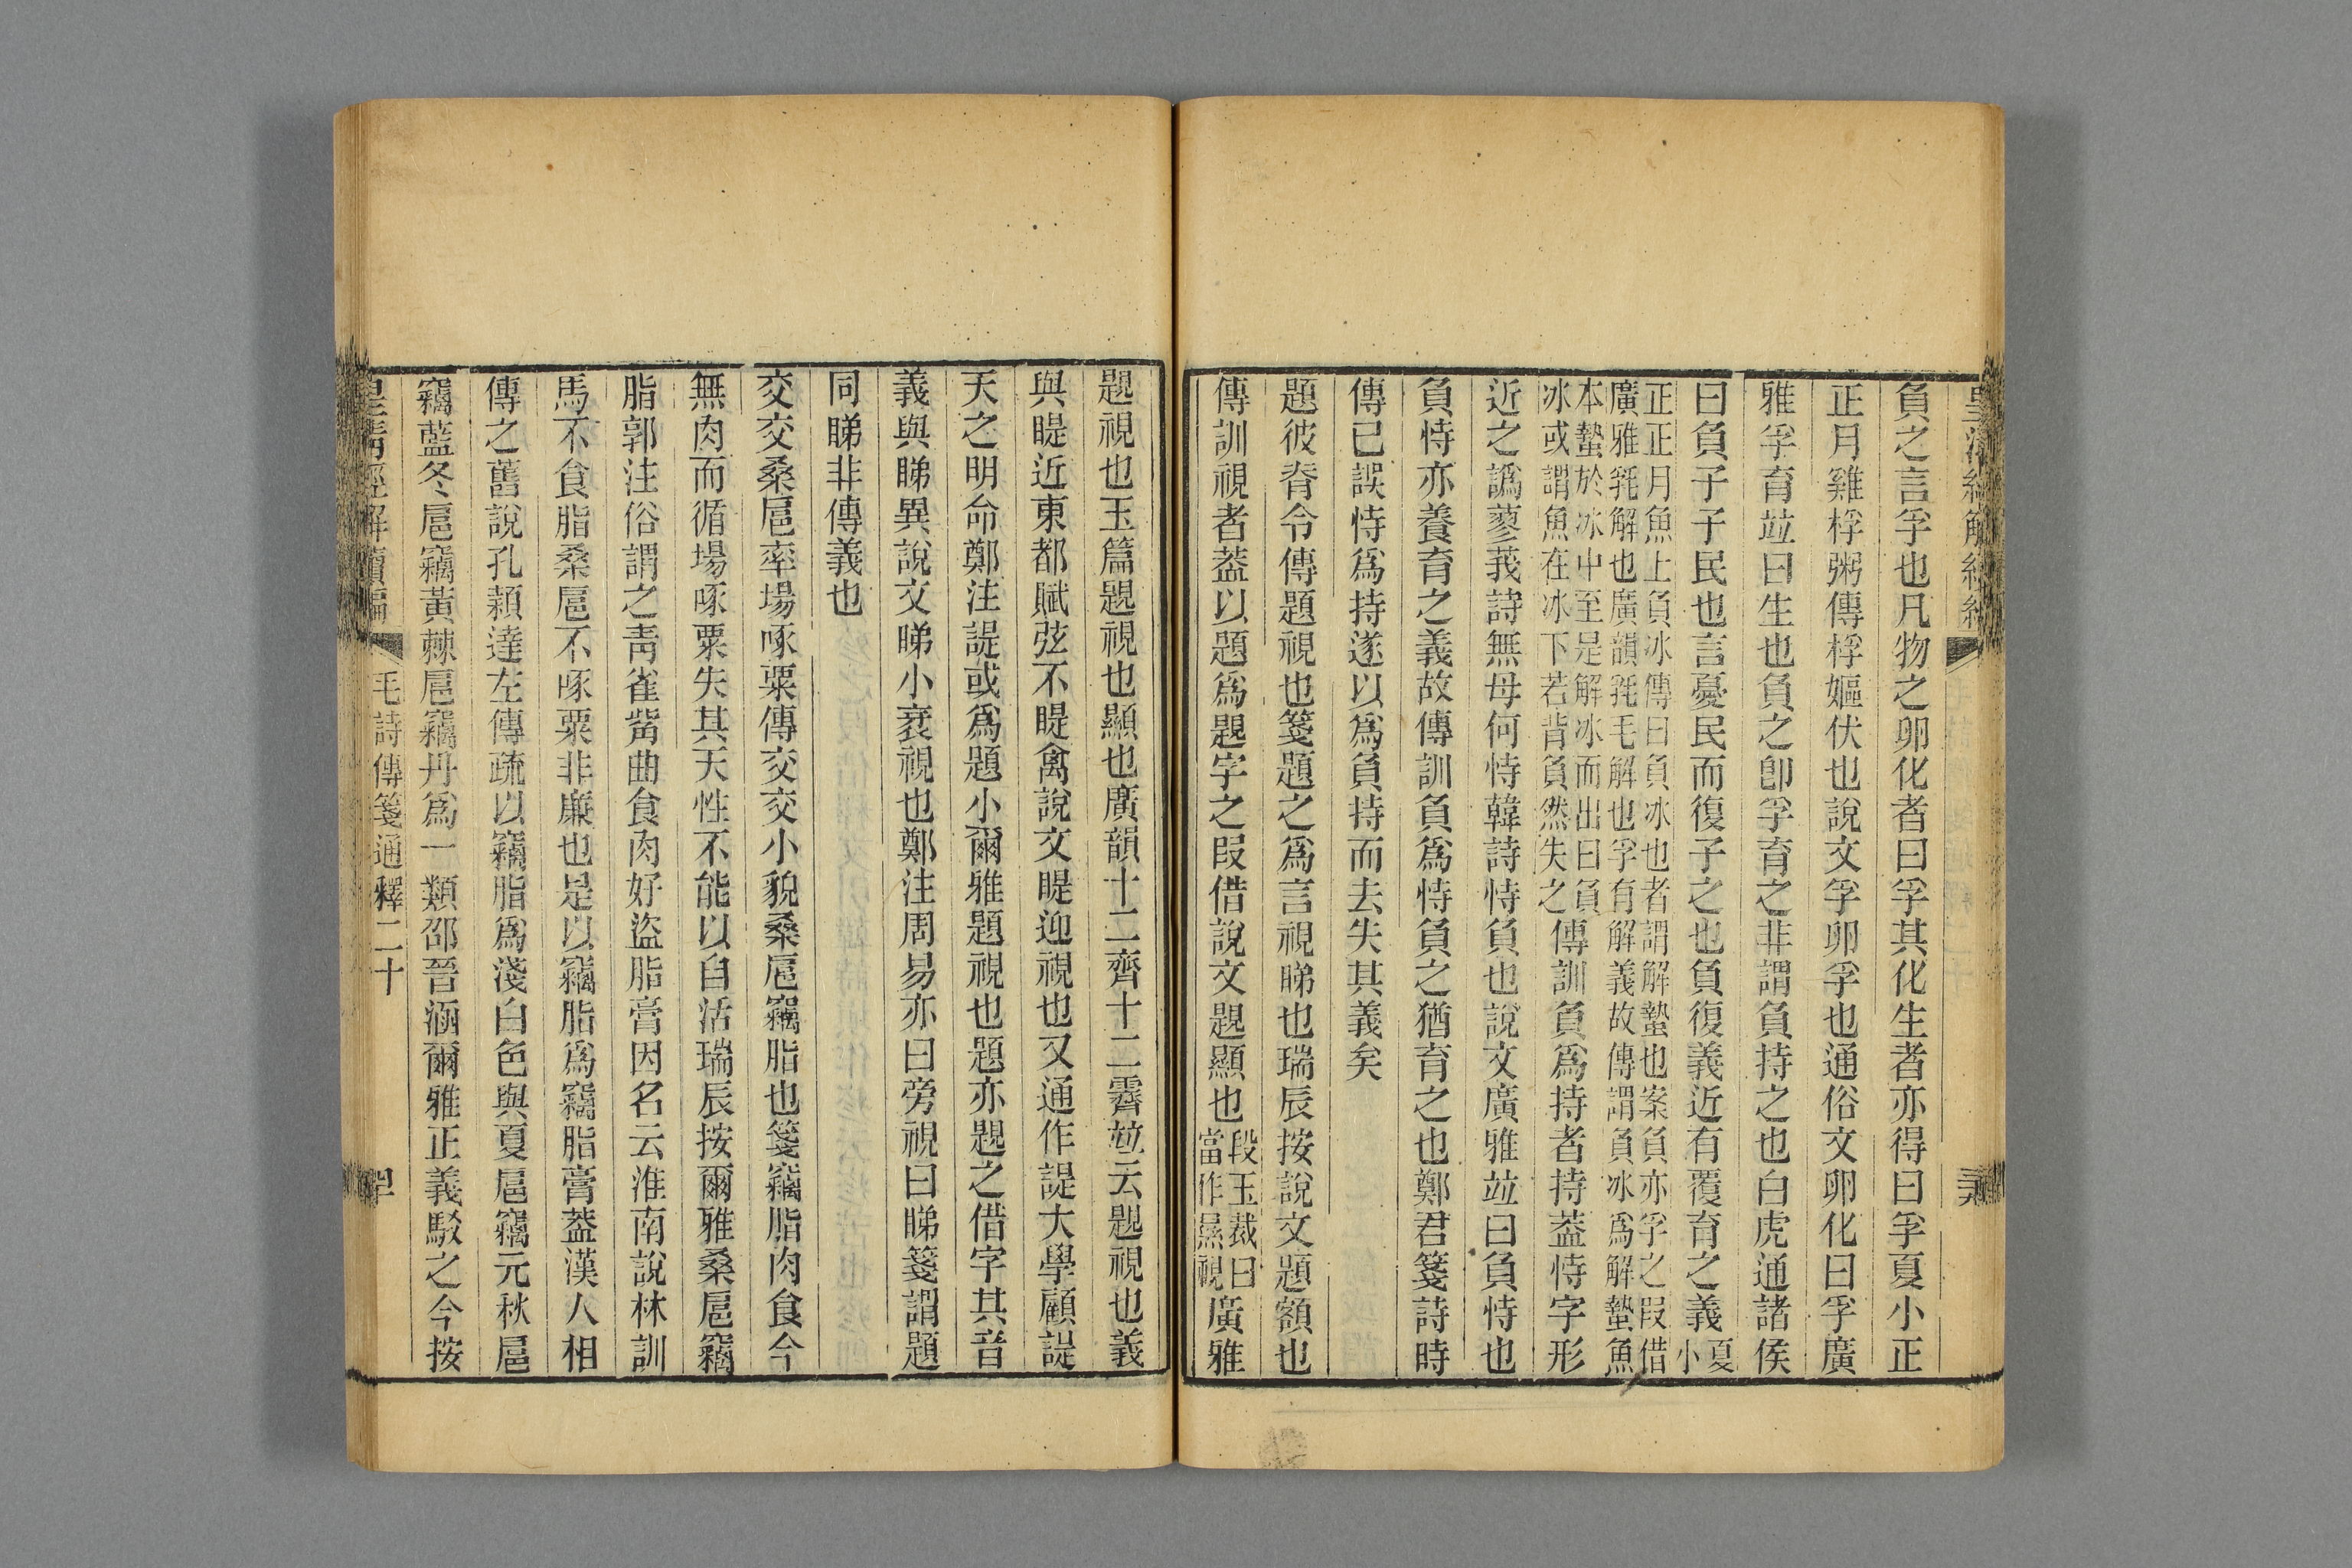 負之言孚也凡物之卵化者曰孚其化生者亦得曰孚夏小正
正月雞桴粥傳桴嫗伏也說文孚卵孚也通俗文卵化曰孚廣
雅孚育竝曰生也負之卽孚育之非謂負持之也白虎通諸侯
曰負子子民也言憂民而復子之也負復義近有覆育之義夏小
正正月魚上負冰傳曰負冰也者謂解蟄也案負亦孚之叚借
廣雅毦解也廣韻毦毛解也孚有解義故傳謂負冰爲解蟄魚
本蟄於冰中至是解冰而出曰負
冰或謂魚在冰下若背負然失之傳訓負爲持者持葢恃字形
近之譌蓼莪詩無母何恃韓詩恃負也說文廣雅竝曰負恃也
負恃亦養育之義故傳訓負爲恃負之猶育之也鄭君箋詩時
傳已誤恃爲持遂以爲負持而去失其義矣
題彼脊令傳題視也箋題之爲言視睇也瑞辰按說文題額也
傳訓視者葢以題爲題字之叚借說文題顯也段玉裁曰當作㬎視廣雅
題視也玉篇題視也顯也廣韻十二齊十二霽竝云題視也義
與睼近東都賦弦不睼禽說文睼迎視也又通作諟大學顧諟
天之明命鄭注諟或爲題小爾雅題視也題亦題之借字其音
義與睇異說文睇小衺視也鄭注周易亦曰旁視曰睇箋謂題
同睇非傳義也
交交桑扈率場啄粟傳交交小貌桑扈竊脂也箋竊脂肉食今
無肉而循場啄粟失其天性不能以自活瑞辰按爾雅桑扈竊
脂郭注俗謂之青雀觜曲食肉好盜脂膏因名云淮南說林訓
馬不食脂桑扈不啄粟非廉也是以竊脂爲竊脂膏葢漢人相
傳之舊說孔穎達左傳疏以竊脂爲淺白色與夏扈竊元秋扈
竊藍冬扈竊黃棘扈竊丹爲一類邵晉涵爾雅正義駁之今按
皇清經解續編 毛詩傳箋通釋二十